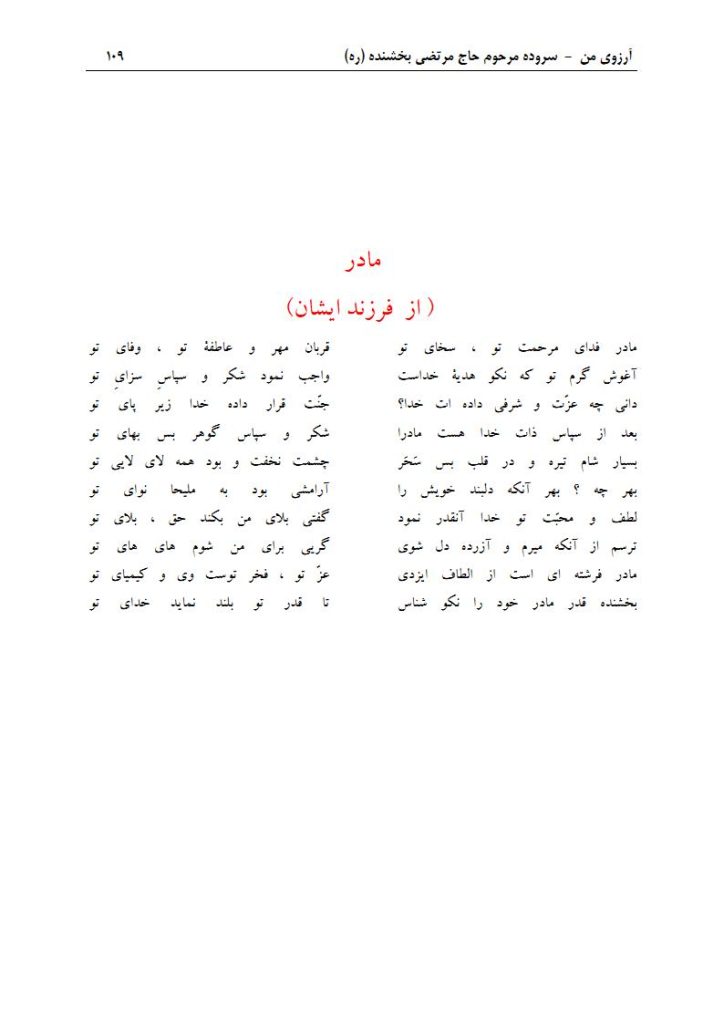 آرزوی من - سروده مرحوم حاج مرتضی بخشنده (ره) ۱۰۹
مادر
( از فرزند ایشان)
مادر فدای مرحمت تو ، سخای تو قربان مهر و عاطفهٔ تو ، وفای تو
آغوش گرم تو که نکو هدیهٔ خداست واجب نمود شکر و سپاسِ سزایِ تو
دانی چه عزّت و شرفی داده ات خدا؟ جنّت قرار داده خدا زیر پای تو
بعد از سپاس ذات خدا هست مادرا شکر و سپاس گوهر بس بهای تو
بسیار شام تیره و در قلب بس سَحَر چشمت نخفت و بود همه لای لایی تو
بهر چه ؟ بهر آنکه دلبند خویش را آرامشی بود به ملیحا نوای تو
لطف و محبّت تو خدا آنقدر نمود گفتی بلای من بکند حق ، بلای تو
ترسم از آنکه میرم و آزرده دل شوی گریی برای من شوم های های تو
مادر فرشته ای است از الطاف ایزدی عزّ تو ، فخر توست وی و کیمیای تو
بخشنده قدر مادر خود را نکو شناس تا قدر تو بلند نماید خدای تو